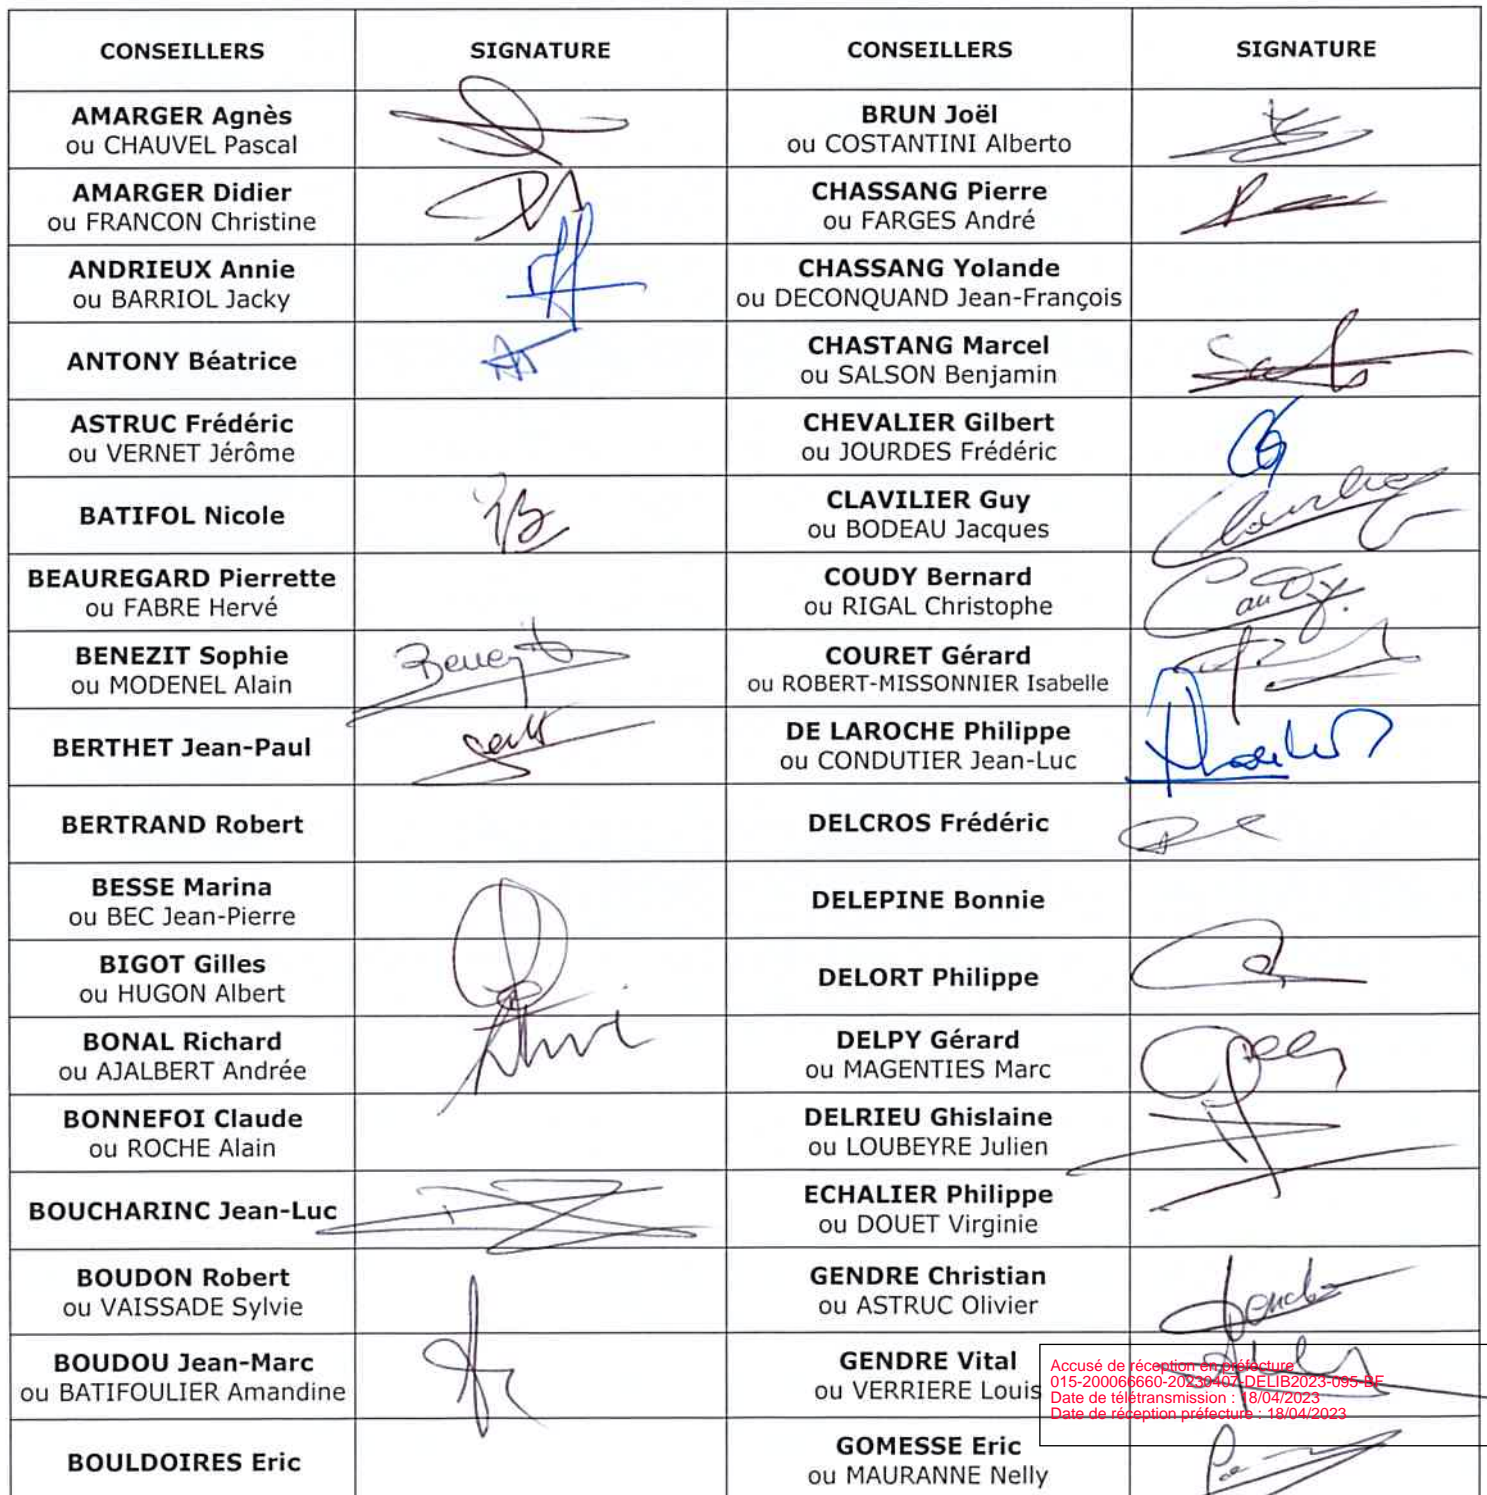 CONSEILLERS SIGNATURE CONSEILLERS SIGNATURE
AMARGER Agnès
ou CHAUVEL Pascal
BRUN Joël
ou COSTANTINI Alberto
AMARGER Didier
ou FRANCON Christine
CHASSANG Pierre
ou FARGES André
ANDRIEUX Annie
ou BARRIOL Jacky
CHASSANG Yolande
ou DECONQUAND Jean-François
ANTONY Béatrice
CHASTANG Marcel
ou SALSON Benjamin
ASTRUC Frédéric
ou VERNET Jérôme
CHEVALIER Gilbert
ou JOURDES Frédéric
BATIFOL Nicole
CLAVILIER Guy
ou BODEAU Jacques
BEAUREGARD Pierrette
ou FABRE Hervé
COUDY Bernard
ou RIGAL Christophe
BENEZIT Sophie
ou MODENEL Alain
Benezit
COURET Gérard
ou ROBERT-MISSONNIER Isabelle
BERTHET Jean-Paul
DE LAROCHE Philippe
ou CONDUTIER Jean-Luc
BERTRAND Robert
DELCROS Frédéric
BESSE Marina
ou BEC Jean-Pierre
DELEPINE Bonnie
BIGOT Gilles
ou HUGON Albert
DELORT Philippe
BONAL Richard
ou AJALBERT Andrée
DELPY Gérard
ou MAGENTIES Marc
BONNEFOI Claude
ou ROCHE Alain
DELRIEU Ghislaine
ou LOUBEYRE Julien
BOUCHARINC Jean-Luc
ECHALIER Philippe
ou DOUET Virginie
BOUDON Robert
ou VAISSADE Sylvie
GENDRE Christian
ou ASTRUC Olivier
BOUDOU Jean-Marc
ou BATIFOULIER Amandine
GENDRE Vital
ou VERRIERE Louis
Accusé de réception en préfecture
015-200066660-20230407-DELIB2023-095-BF
Date de télétransmission : 18/04/2023
Date de réception préfecture : 18/04/2023
BOULDOIRES Eric
GOMESSE Eric
ou MAURANNE Nelly